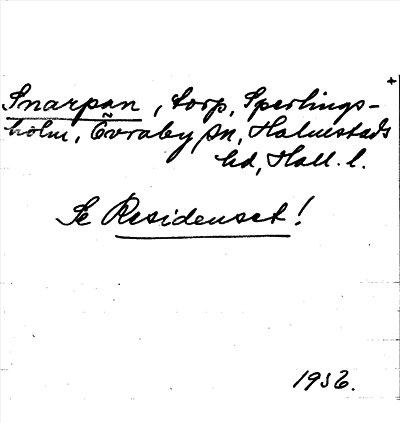 +
Snarpan, torp, Sperlings-
holm, Övraby sn, Halmstads
hd, Hall. l.
Se Residenset!
1936.